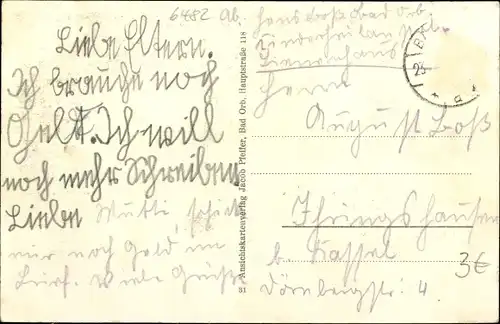 6482 Ab. Hans Boß Bad Orb
Kinderheilanstalt
Bienenhaus
Liebe Eltern.
Ich brauche noch
Geld. Ich will
noch mehr Schreiben.
Liebe Mutti, schickt
mir noch Geld im
Brief. Viele Grüße
31 Ansichtskartenverlag Jacob Pfeiffer, Bad Orb, Hauptstraße 118
Herrn
August Boß
Ihringshausen
b. Kassel
Dörnbergstr. 4
3€
B
23